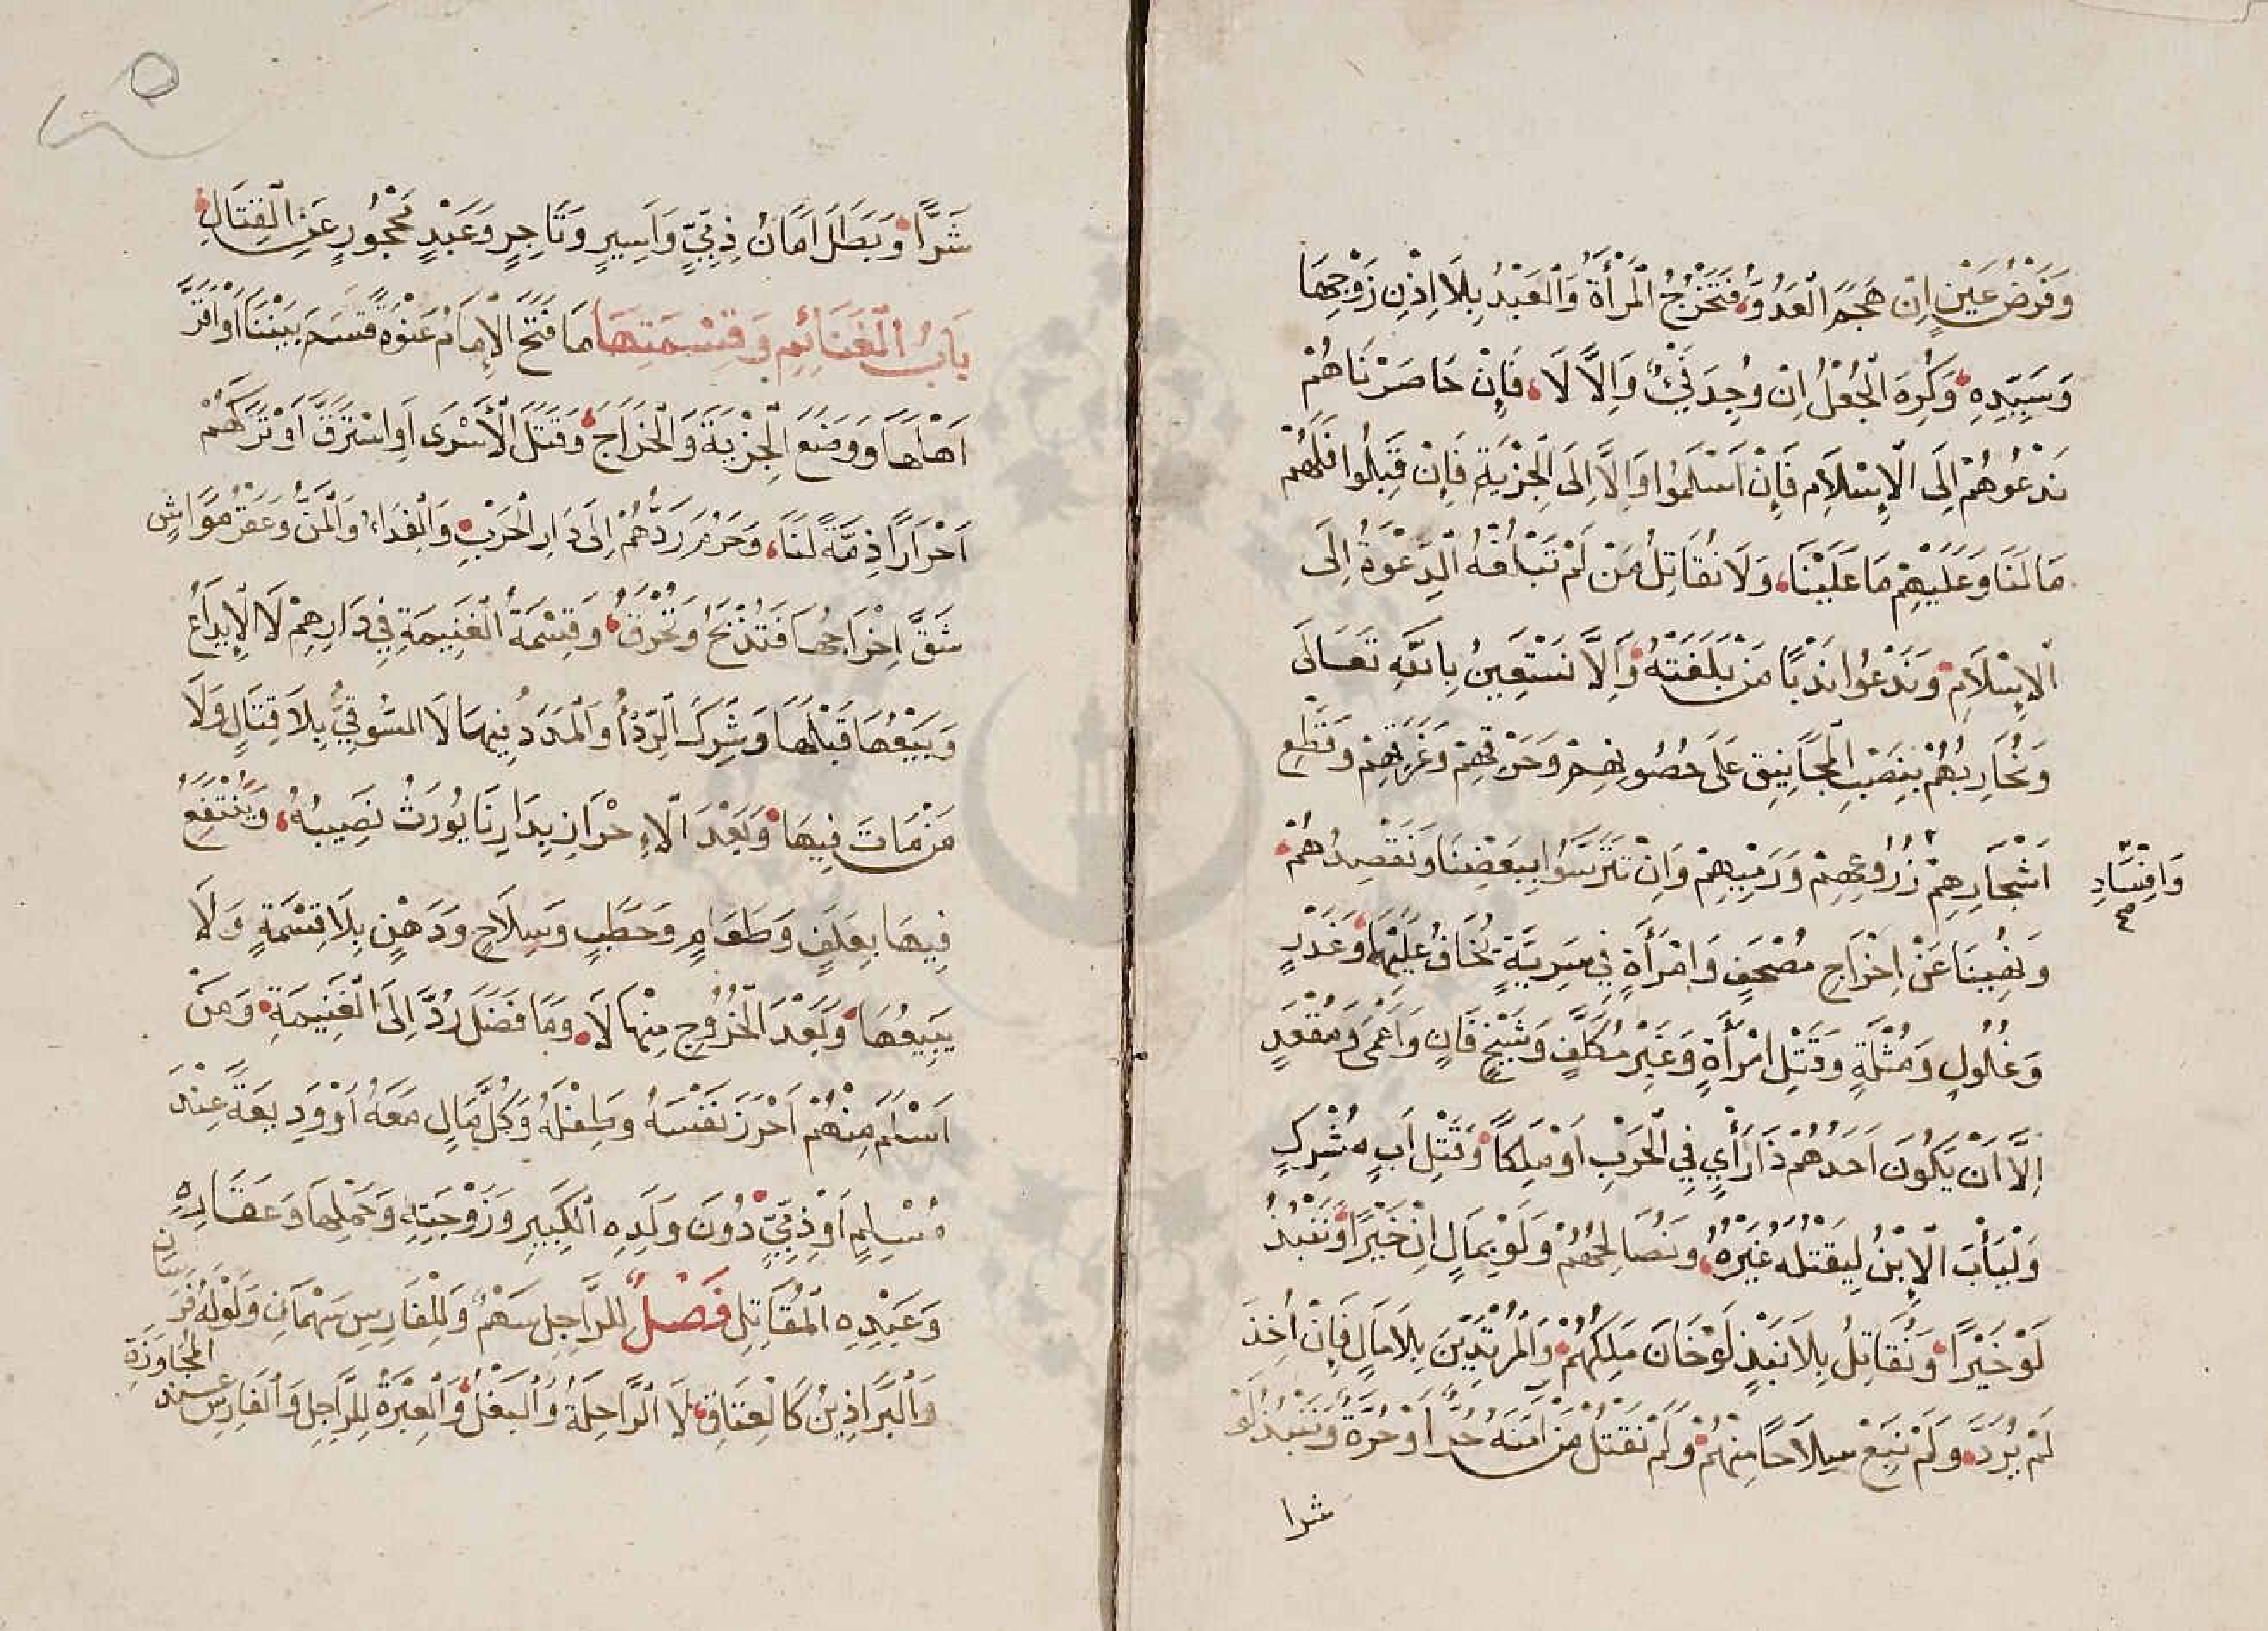 وَفَرْضُ عَيْنٍ اِنْ هَجَمَ الْعَدُوُّ، فَتَخْرُجُ الْمَرْأَةُ وَالْعَبْدُ بِلَا اِذْنِ زَوْجِهَا
وَسَيِّدِهِ، وَكُرِهَ الْجُعْلُ اِنْ وُجِدَ فَيْءٌ وَاِلَّا لَا، فَاِنْ حَاصَرْنَاهُمْ
نَدْعُوهُمْ اِلَى الْاِسْلَامِ فَاِنْ اَسْلَمُوا وَاِلَّا اِلَى الْجِزْيَةِ فَاِنْ قَبِلُوا فَلَهُمْ
مَا لَنَا وَعَلَيْهِمْ مَا عَلَيْنَا، وَلَا نُقَاتِلُ مَنْ لَمْ تَبْلُغْهُ الدَّعْوَةُ اِلَى
الْاِسْلَامِ، وَنَدْعُوا نَدْبًا مَنْ بَلَغَتْهُ، وَاِلَّا نَسْتَعِينُ بِاللّٰهِ تَعَالَى
وَنُحَارِبُهُمْ بِنَصْبِ الْمَجَانِيقِ عَلَى حُصُونِهِمْ وَحَرْقِهِمْ وَغَرَقِهِمْ وَقَطْعِ
اَشْجَارِهِمْ زُرُوعِهِمْ وَرَمْيِهِمْ وَاِنْ تَتَرَّسُوا بِبَعْضِنَا وَنَقْصِدُهُمْ،
وَاِفْسَادِ
وَنُهِينَا عَنْ اِخْرَاجِ مُصْحَفٍ وَامْرَأَةٍ فِي سَرِيَّةٍ يُخَافُ عَلَيْهِمَا، وَغَدْرٍ
وَغُلُولٍ وَمُثْلَةٍ وَقَتْلِ امْرَأَةٍ وَغَيْرِ مُكَلَّفٍ وَشَيْخٍ فَانٍ وَاَعْمَى وَمُقْعَدٍ
اِلَّا اَنْ يَكُونَ اَحَدُهُمْ ذَا رَأْيٍ فِي الْحَرْبِ اَوْ مَلِكًا، وَقَتْلِ اَبٍ مُشْرِكٍ
وَلْيَأْبَ الْاِبْنُ لِيَقْتُلَهُ غَيْرُهُ، وَنُصَالِحُهُمْ وَلَوْ بِمَالٍ اِنْ خَيْرًا، وَنَنْبُذُ
لَوْ خَيْرًا، وَنُقَاتِلُ بِلَا نَبْذٍ لَوْ خَانَ مَلِكُهُمْ، وَالْمُرْتَدِّينَ بِلَا مَالٍ فَاِنْ اُخِذَ
لَمْ يُرَدَّ، وَلَمْ نَبِعْ سِلَاحًا مِنْهُمْ، وَلَمْ نَقْتُلْ مَنْ اَمَّنَهُ حُرٌّ اَوْ حُرَّةٌ، وَنَنْبُذُ لَوْ
شرا
شَرًّا، وَبَطَلَ اَمَانُ ذِمِّيٍّ وَاَسِيرٍ وَتَاجِرٍ وَعَبْدٍ مَحْجُورٍ عَنِ الْقِتَالِ،
بَابُ الْغَنَائِمِ وَقِسْمَتِهَا مَا فَتَحَ الْاِمَامُ عَنْوَةً قَسَمَ بَيْنَنَا اَوْ اَقَرَّ
اَهْلَهَا وَوَضَعَ الْجِزْيَةَ وَالْخَرَاجَ، وَقَتَلَ الْاَسْرَى اَوِ اسْتَرَقَّ اَوْ تَرَكَهُمْ
اَحْرَارًا ذِمَّةً لَنَا، وَحَرُمَ رَدُّهُمْ اِلَى دَارِ الْحَرْبِ، وَالْفِدَاءُ وَالْمَنُّ وَعَقْرُ مَوَاشٍ
شَقَّ اِخْرَاجُهَا فَتُذْبَحُ وَتُحْرَقُ، وَقِسْمَةُ الْغَنِيمَةِ فِي دَارِهِمْ لَا الْاِيدَاعُ
وَبَيْعُهَا قَبْلَهَا وَشَرِكَ الرِّدْأُ وَالْمَدَدُ فِيهَا لَا السُّوقِيُّ بِلَا قِتَالٍ وَلَا
مَنْ مَاتَ فِيهَا، وَبَعْدَ الْاِحْرَازِ بِدَارِنَا يُورَثُ نَصِيبُهُ، وَيَنْتَفِعُ
فِيهَا بِعَلَفٍ وَطَعَامٍ وَحَطَبٍ وَسِلَاحٍ وَدَهْنٍ بِلَا قِسْمَةٍ وَلَا
يَبِيعُهَا، وَبَعْدَ الْخُرُوجِ مِنْهَا لَا، وَمَا فَضَلَ رُدَّ اِلَى الْغَنِيمَةِ، وَمَنْ
اَسْلَمَ مِنْهُمْ اَحْرَزَ نَفْسَهُ وَطِفْلَهُ وَكُلَّ مَالٍ مَعَهُ اَوْ وَدِيعَةً عِنْدَ
مُسْلِمٍ اَوْ ذِمِّيٍّ، دُونَ وَلَدِهِ الْكَبِيرِ وَزَوْجَتِهِ وَحَمْلِهَا وَعَقَارِهِ
وَعَبْدِهِ الْمُقَاتِلِ فَصْلٌ لِلرَّاجِلِ سَهْمٌ وَلِلْفَارِسِ سَهْمَانِ وَلَوْ لَهُ فَرَسَانِ
وَالْبَرَاذِينُ كَالْعِتَاقِ، لَا الرَّاحِلَةُ وَالْبَغْلُ، وَالْعِبْرَةُ لِلرَّاجِلِ وَالْفَارِسِ عند
المجاوزة